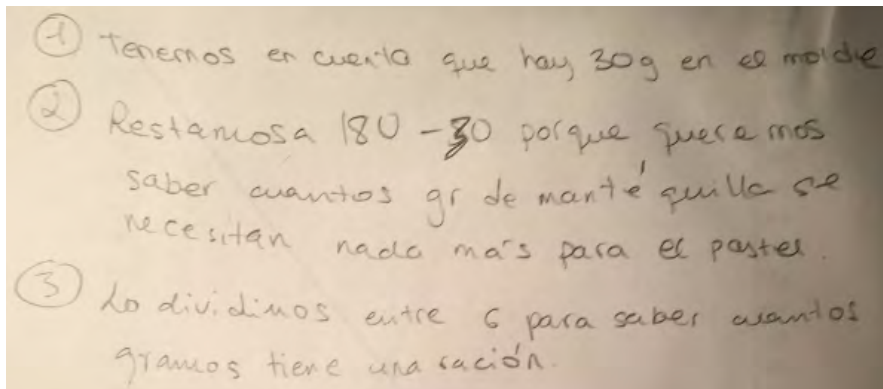 ① Tenemos en cuenta que hay 30g en el molde
② Restamosa 180 - 30 porque queremos
saber cuantos gr de mantéquilla se
necesitan nada más para el pastel.
③ Lo dividimos entre 6 para saber cuantos
gramos tiene una ración.